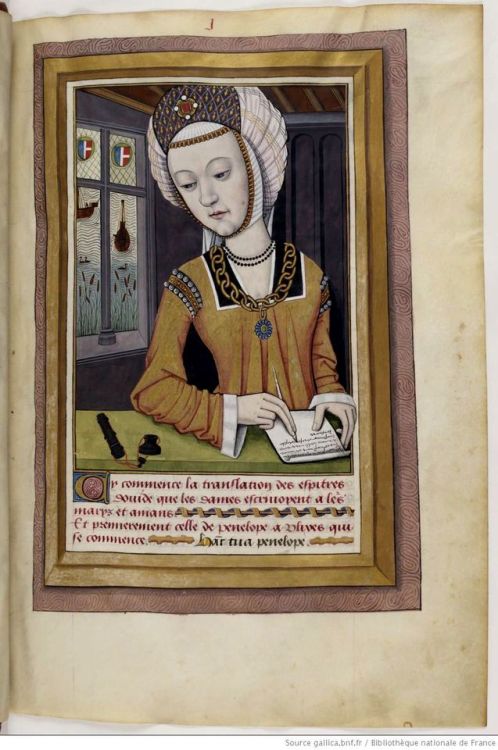 1
Cy commence la translation des epistres
douide que les dames escriuoyent a leˢ
marys et amans
Et premierement celle de penelope a Vlixes qui
se commence. Hāc tua penelope.
Source gallica.bnf.fr / Bibliothèque nationale de France